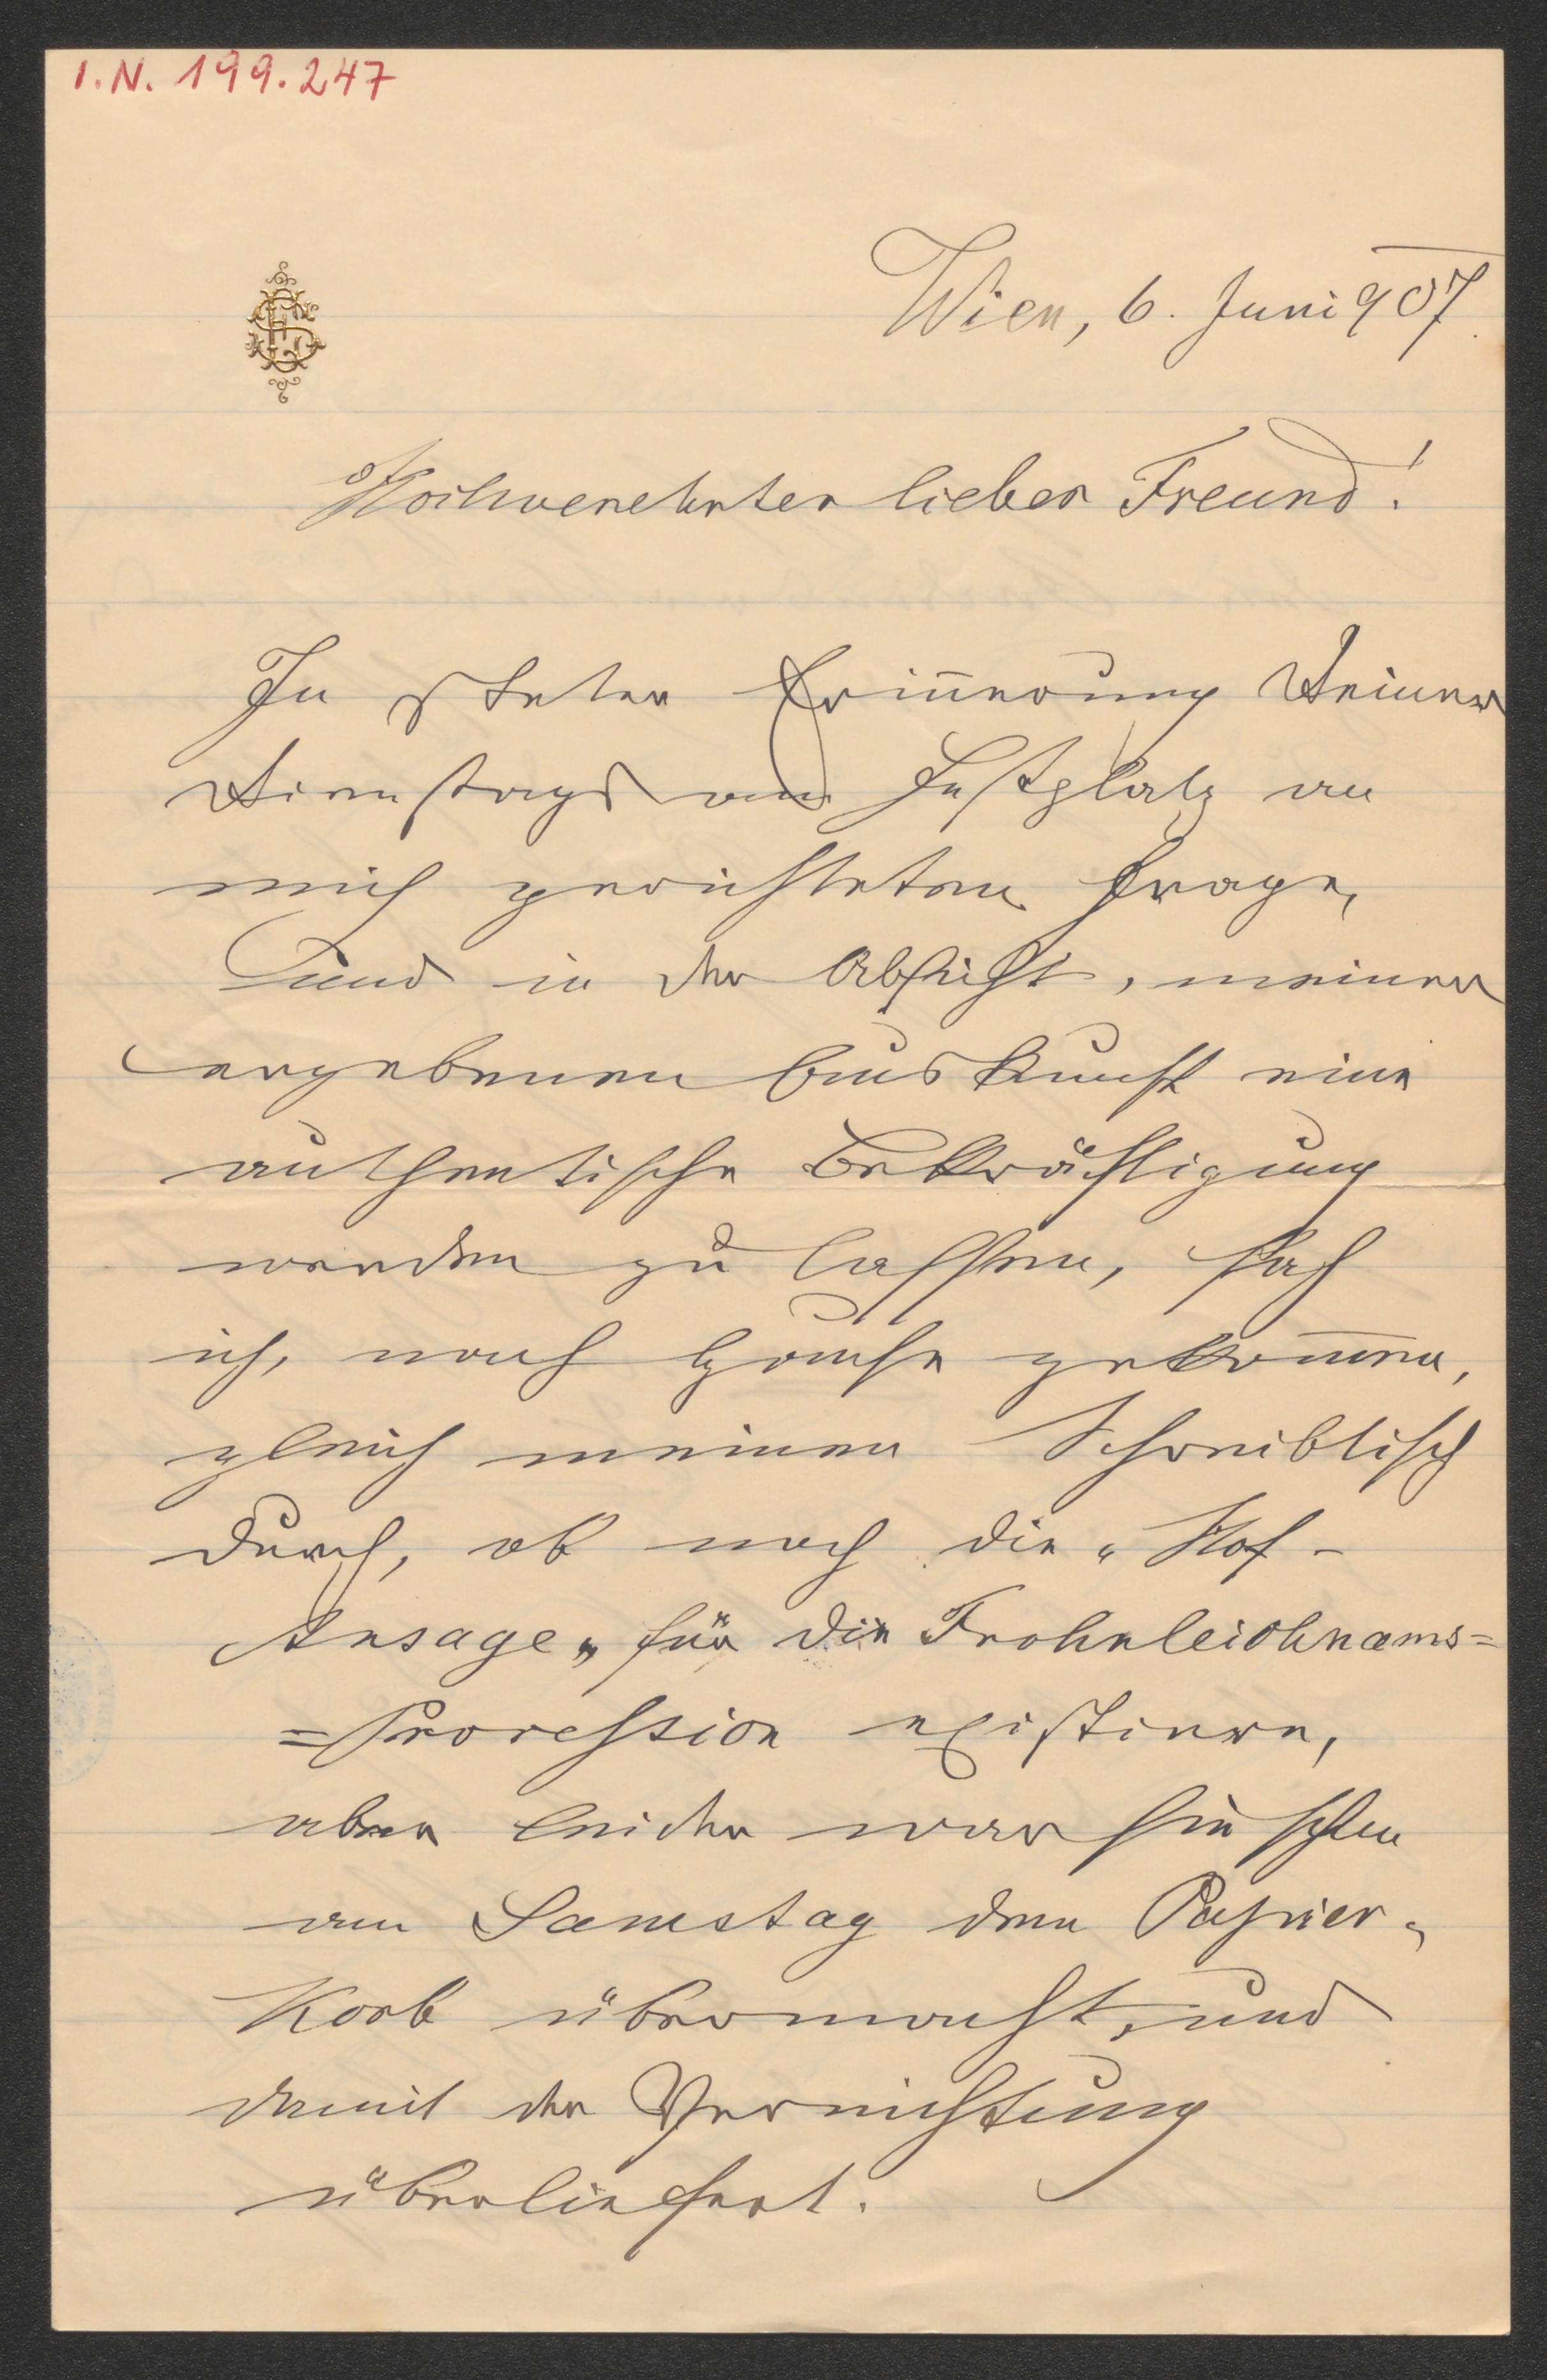 I.N. 199.247
Wien, 6. Juni 907.
Hochverehrter lieber Freund!
In steter Erinnerung Deiner
Dienstags am Festplatz an
mich gerichteten Frage,
und in der Absicht, meiner
ergebenen Auskunft eine
authentische Bekräftigung
werden zu lassen, sah
ich, nach Hause gekommen,
gleich meinen Schreibtisch
durch, ob noch die „Hof-
Ansage„ für die Frohnleichnams=
=Procession existiere,
aber leider war sie schon
am Samstag dem Papier-
Korb übermacht, und
damit der Vernichtung
überliefert.